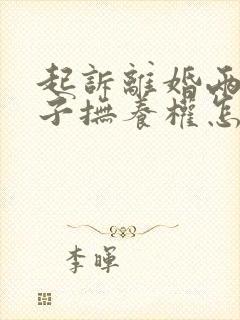 起訴離婚兩
子撫養權怎
李暉